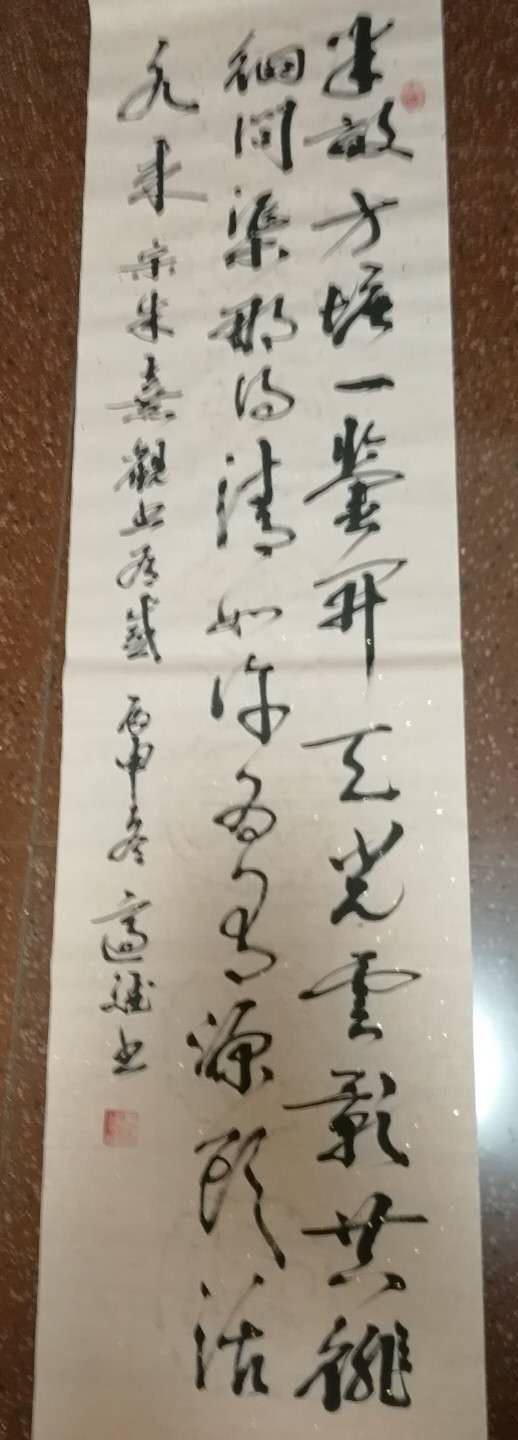 半畝方塘一鑒開天光雲影共徘
徊問渠那得清如許為有源頭活
水來 宋朱熹觀書有感 丙申冬 書